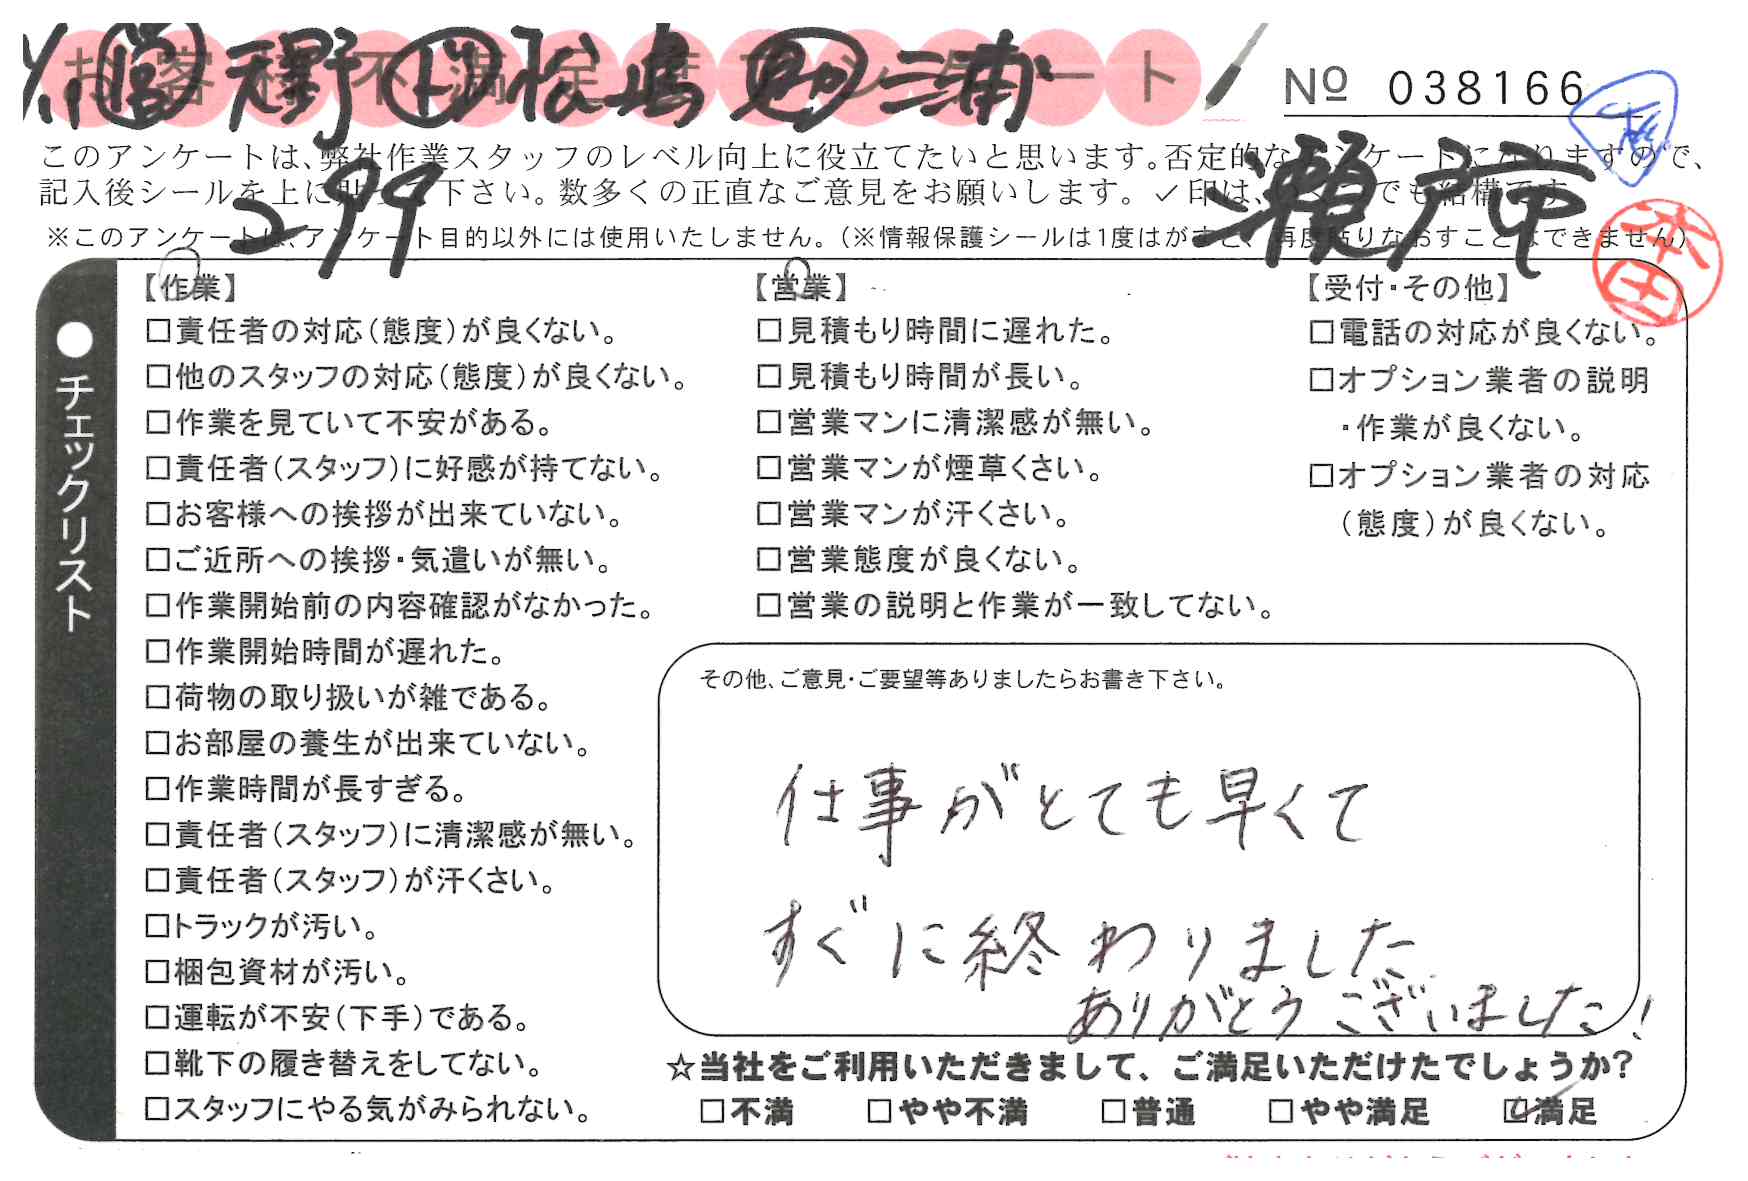 お客様不満足度アンケート
営 天野 ド 松嶋 助 三浦
No 038166
このアンケートは、弊社作業スタッフのレベル向上に役立てたいと思います。否定的なアンケートになりますので、
記入後シールを上に貼って下さい。数多くの正直なご意見をお願いします。✓印は、いくつでも結構です
※このアンケートは、アンケート目的以外には使用いたしません。(※情報保護シールは1度はがすと、再度貼りなおすことはできません)
299
瀬戸市
本田
●チェックリスト
【作業】
□責任者の対応(態度)が良くない。
□他のスタッフの対応(態度)が良くない。
□作業を見ていて不安がある。
□責任者(スタッフ)に好感が持てない。
□お客様への挨拶が出来ていない。
□ご近所への挨拶・気遣いが無い。
□作業開始前の内容確認がなかった。
□作業開始時間が遅れた。
□荷物の取り扱いが雑である。
□お部屋の養生が出来ていない。
□作業時間が長すぎる。
□責任者(スタッフ)に清潔感が無い。
□責任者(スタッフ)が汗くさい。
□トラックが汚い。
□梱包資材が汚い。
□運転が不安(下手)である。
□靴下の履き替えをしてない。
□スタッフにやる気がみられない。
【営業】
□見積もり時間に遅れた。
□見積もり時間が長い。
□営業マンに清潔感が無い。
□営業マンが煙草くさい。
□営業マンが汗くさい。
□営業態度が良くない。
□営業の説明と作業が一致してない。
【受付・その他】
□電話の対応が良くない。
□オプション業者の説明
・作業が良くない。
□オプション業者の対応
(態度)が良くない。
その他、ご意見・ご要望等ありましたらお書き下さい。
仕事がとても早くて
すぐに終わりました
ありがとうございました!
☆当社をご利用いただきまして、ご満足いただけたでしょうか?
□不満 □やや不満 □普通 □やや満足 ☑満足